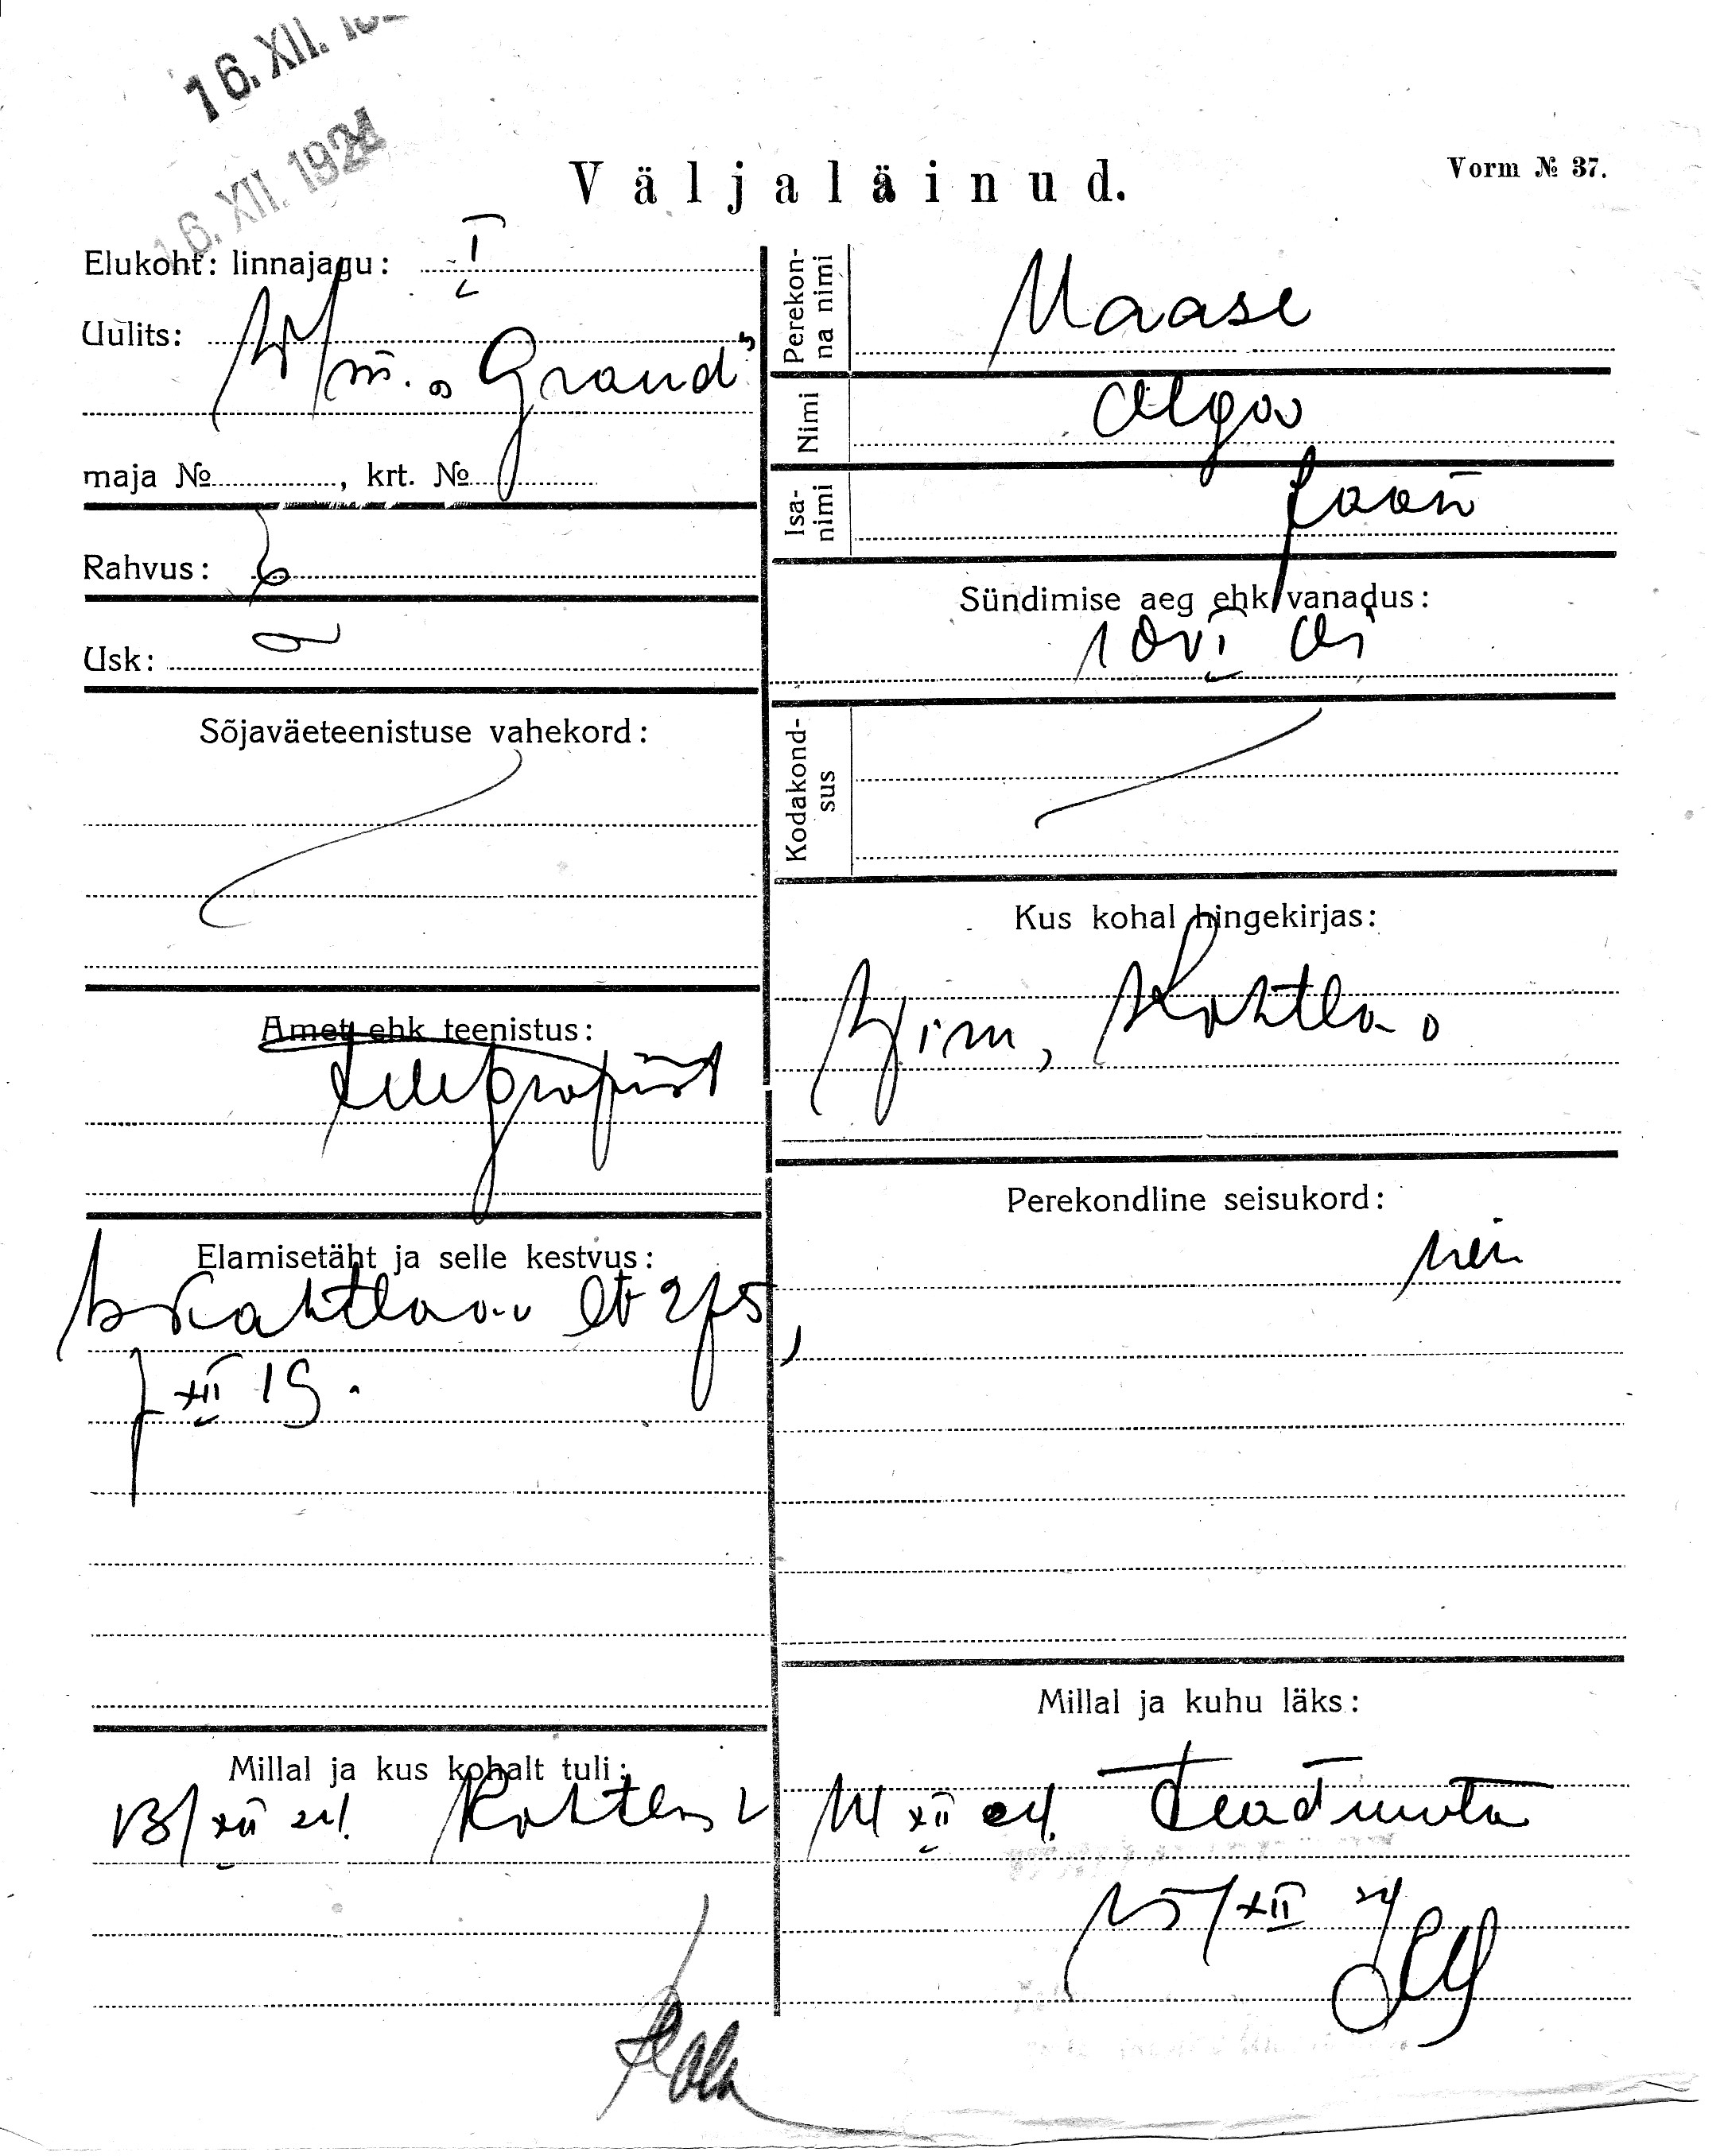 16. XII.
16. XII. 1924
Väljaläinud.
Vorm № 37.
Elukoht: linnajagu: I
Uulits:
"Grand"
maja № , krt. №
Rahvus:
Usk:
Sõjaväeteenistuse vahekord:
Amet ehk teenistus:
telegrafist
Elamisetäht ja selle kestvus:
XII 19.
Millal ja kus kohalt tuli:
13/XII 24. Kohtla
Perekonna nimi
Maase
Nimi
Olga
Isanimi
Jaan
Sündimise aeg ehk vanadus:
10 VI 01
Kodakondsus
Kus kohal hingekirjas:
Kohtla
Perekondline seisukord:
nei
Millal ja kuhu läks:
14 XII 24. Teadmata
15/XII 24